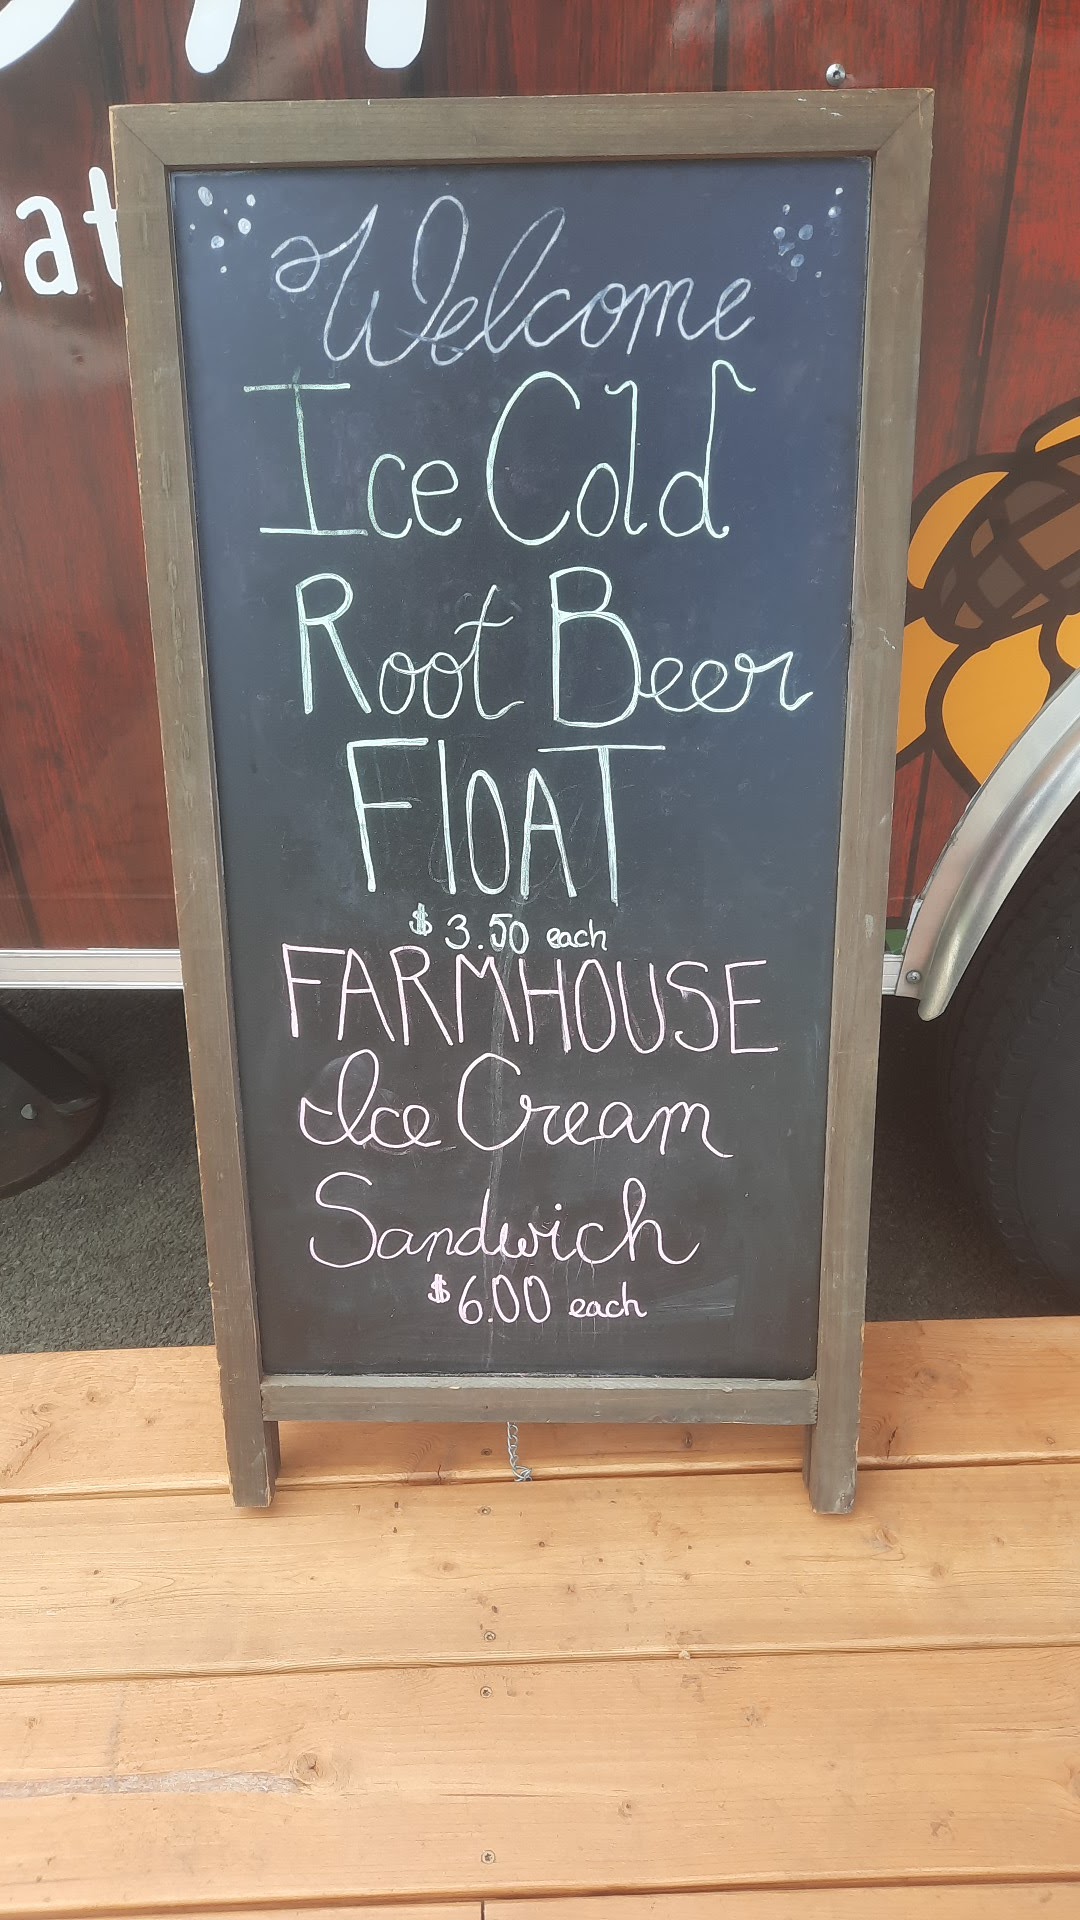 at
Welcome
Ice Cold
Root Beer
FlOAT
$3.50 each
FARMHOUSE
Ice Cream
Sandwich
$6.00 each